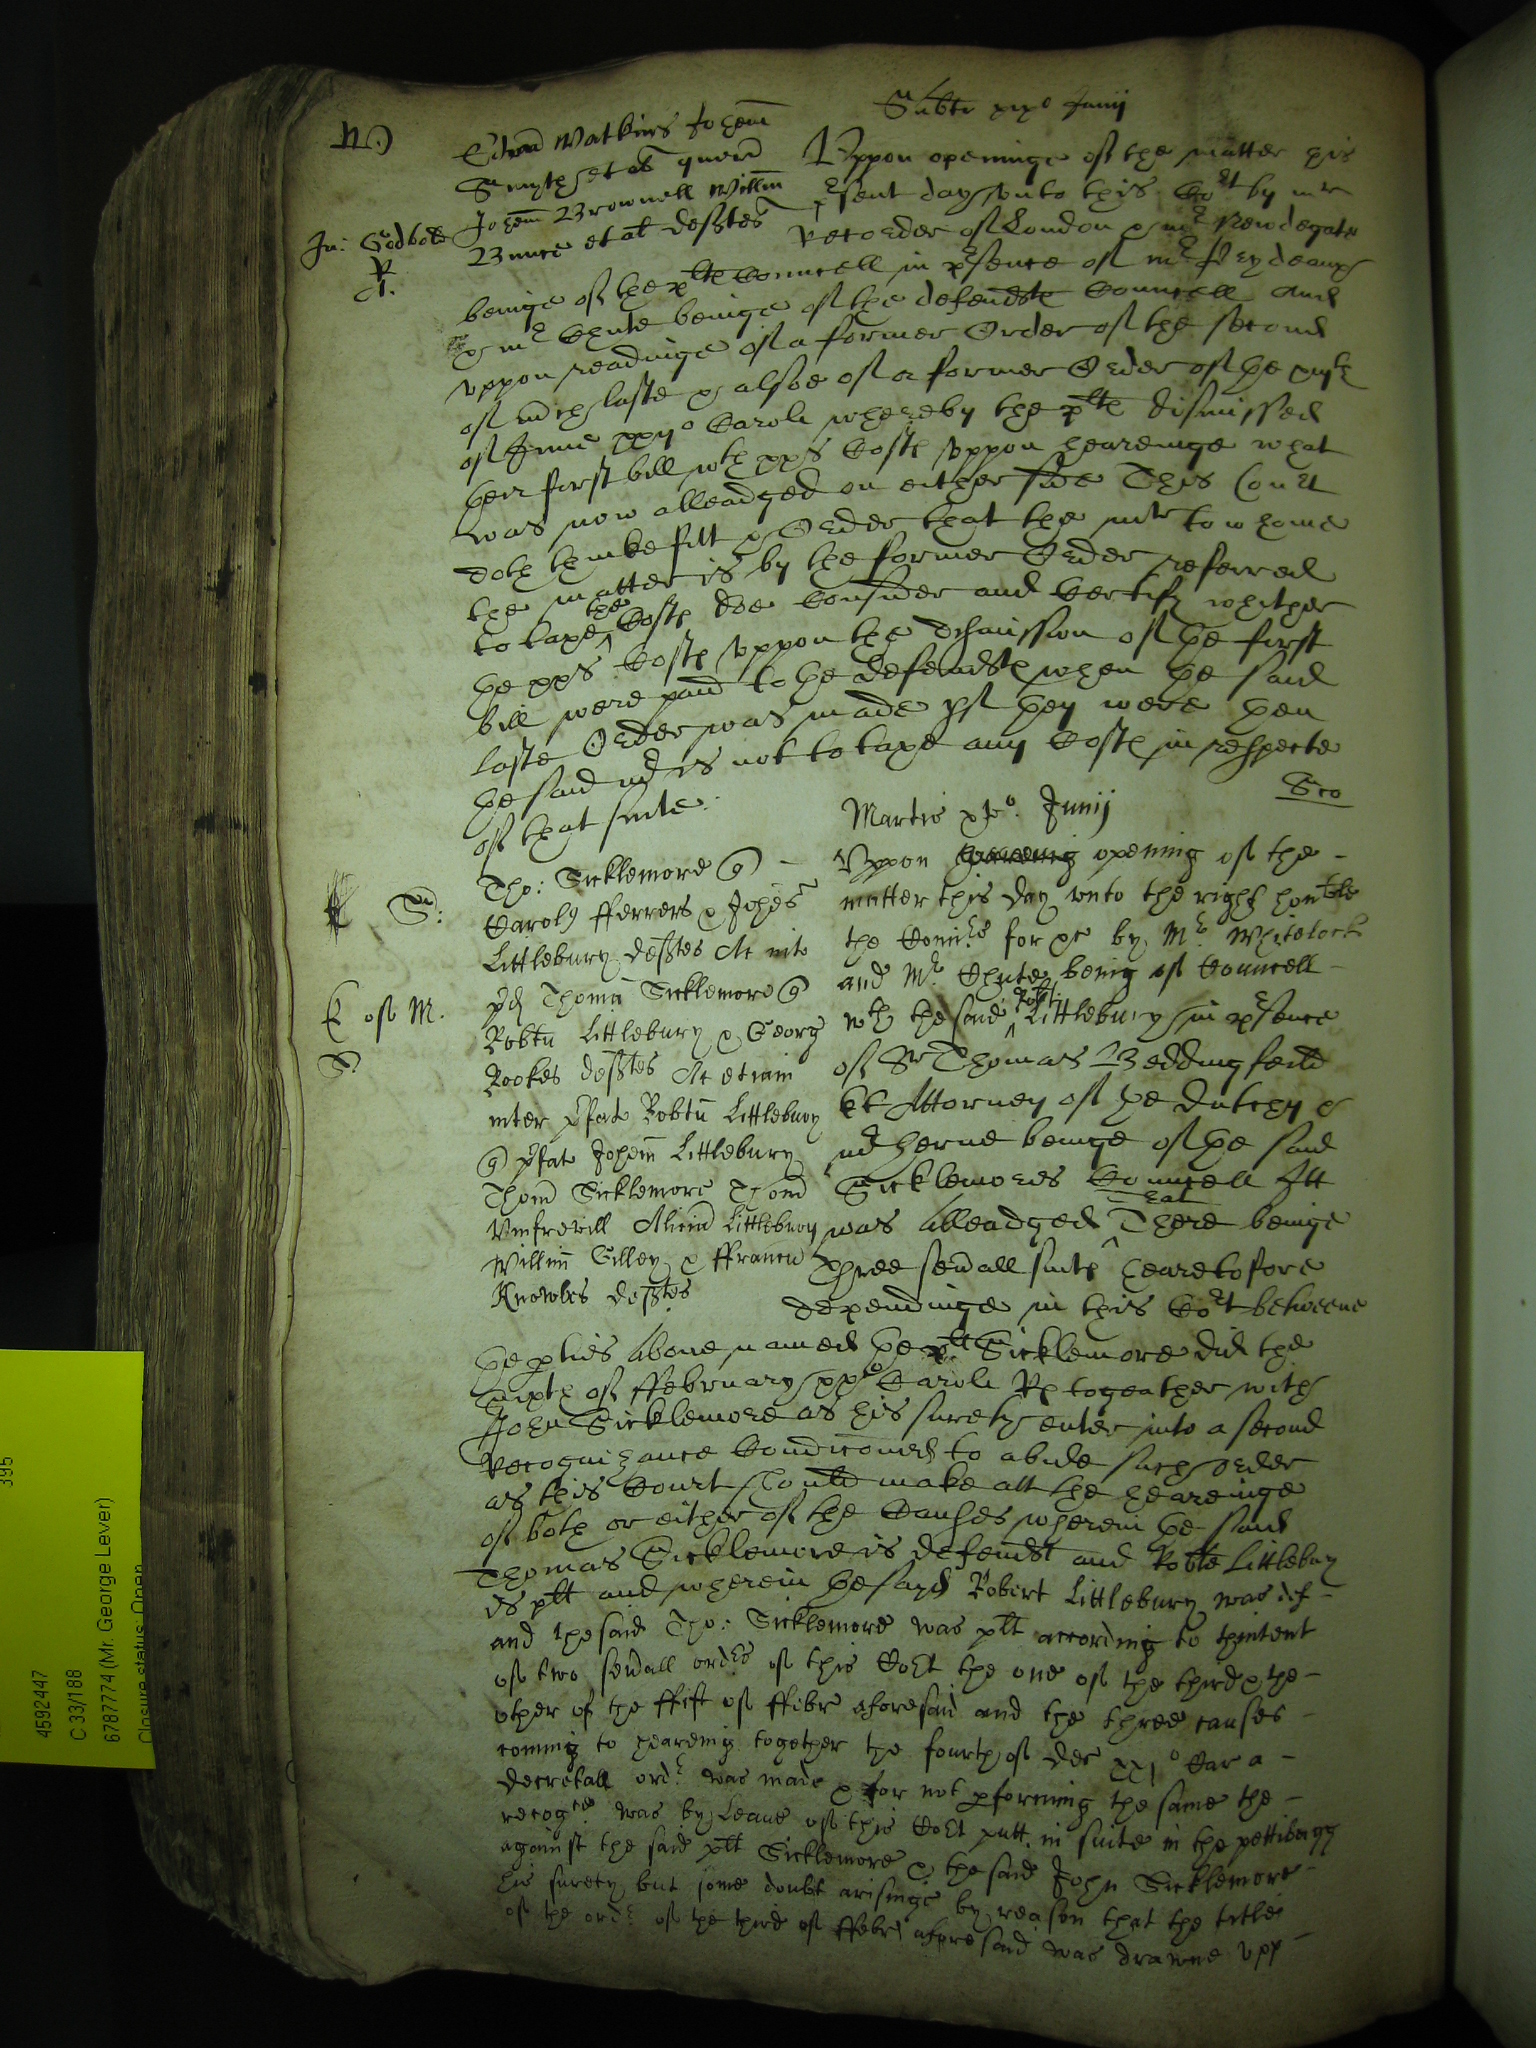 Sabti xixo Junij
W)
Edwd Watkins Johem
Smyth et al quer
Johem Brownell Willm
Bruce et al defftes
Jn: Godbold
R
Uppon openinge of the matter this
psent day unto this Cort by mr
Recorder of London & mr Newdegate
beinge of the plts Councell in psence of mr
& mr Chute beinge of the defendts Councell And
uppon readinge of a former Order of the second
of mch laste & alsoe of a former Order of the
of June xxijo Caroli whereby the plts dismissed
their first bill wth xxs Costs uppon heareinge what
was now alleadged on either side This Court
doth thinke fitt & Order that the mr to whome
the matter is by the former Order referred
to taxe the Costs doe Consider and Certify whither
the xxs Costs uppon the dismission of the first
bill were paid to the defendts when the said
laste Order was made yf they were then
the said mr is not to taxe any Costs in respecte
of that suite.
Martis Junij
Tho: Sicklemore q
Carolus fferrers & Johes
Littlebury defftes Ac inter
pd Thoma Sicklemore q
Robtu Littlebury & Georg
Rookes defftes Ac etiam
inter pfat Robtu Littlebury
q pfat Johem Littlebury
Thom Sicklemore Thom
Umfrevill Aliciam Littlebury
Willim Gilley & ffrancu
Knowles defftes
Uppon heareing opening of the
matter this day unto the right honble
the Comrs for &c by Mr Whitelock
and Mr Chute being of Councell
wth the said Robt Littlebury in psence
of Sr Thomas Beddingfeild
kt Attorney of the dutchy &
mr herne beinge of the said
Sicklemores Councell Itt
was Alleadged That There beinge
three sevall suits heeretofore
dependinge in this Cort betweene
the pties Above named the plt Sicklemore did the
sixth of ffebruary xxo Caroli Rs togeather with
John Sicklemore as his surety enter into a second
Recognizance Condiconed to abide such order
as this Court should make att the heareinge
of both or either of the Causes wherein the said
Thomas Sicklemore is defendt and Robte Littlebury
is plt and wherein the sayd Robert Littlebury was def
and the said Tho: Sicklemore was plt according to thintent
of two sevall ordrs of this Cort the one of the third & the
other of the ffift of ffebr aforesaid and the three causes
coming to heareing together the fourth of Dec xxjo Car a
decretall ordr was made & for not pforming the same the
recogce was by Leave of this Cort putt in suite in the pettibagg
against the said plt Sicklemore & the said John Sicklemore
his surety but some doubt arisinge by reason that the title
of the ordr of the third of ffebr aforesaid was drawne upp
395
4592447
C 33/188
6787774 (Mr. George Lever)
Closure status: Open